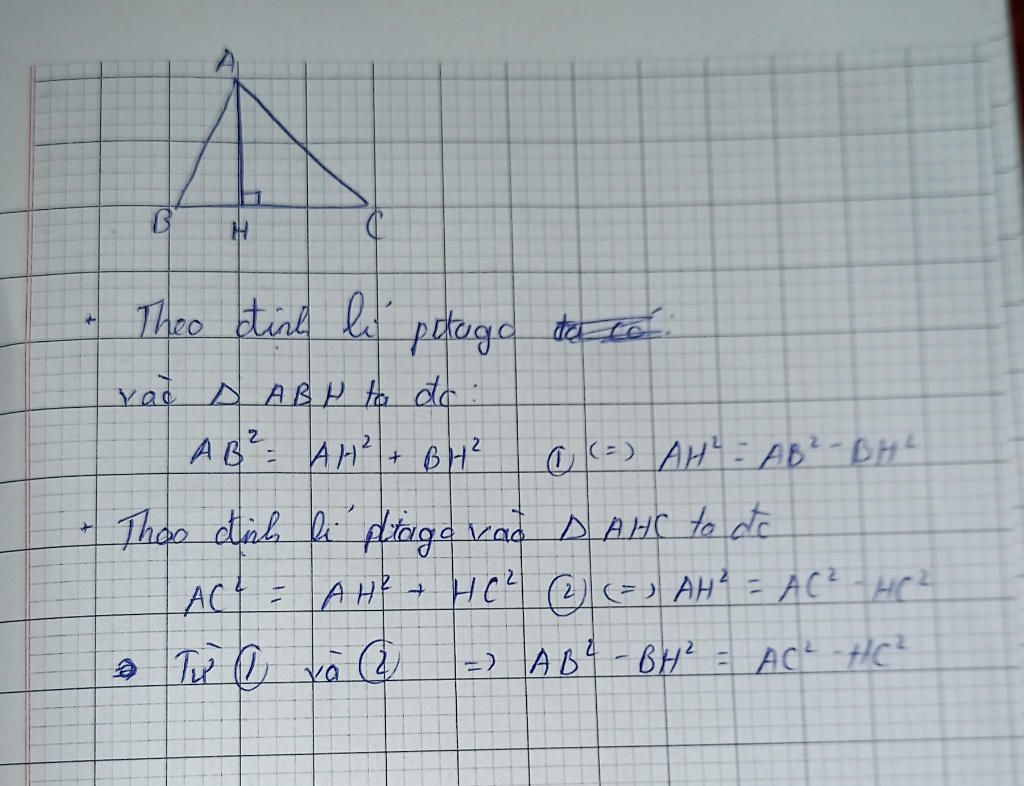 A
B
H
C
+ Theo định lí pitago ta có:
vào Δ ABH ta đc:
AB² = AH² + BH² ① (=) AH² = AB² - BH²
+ Theo định lí pitago vào Δ AHC ta đc
AC² = AH² + HC² ② (=) AH² = AC² - HC²
Từ ① và ② => AB² - BH² = AC² - HC²